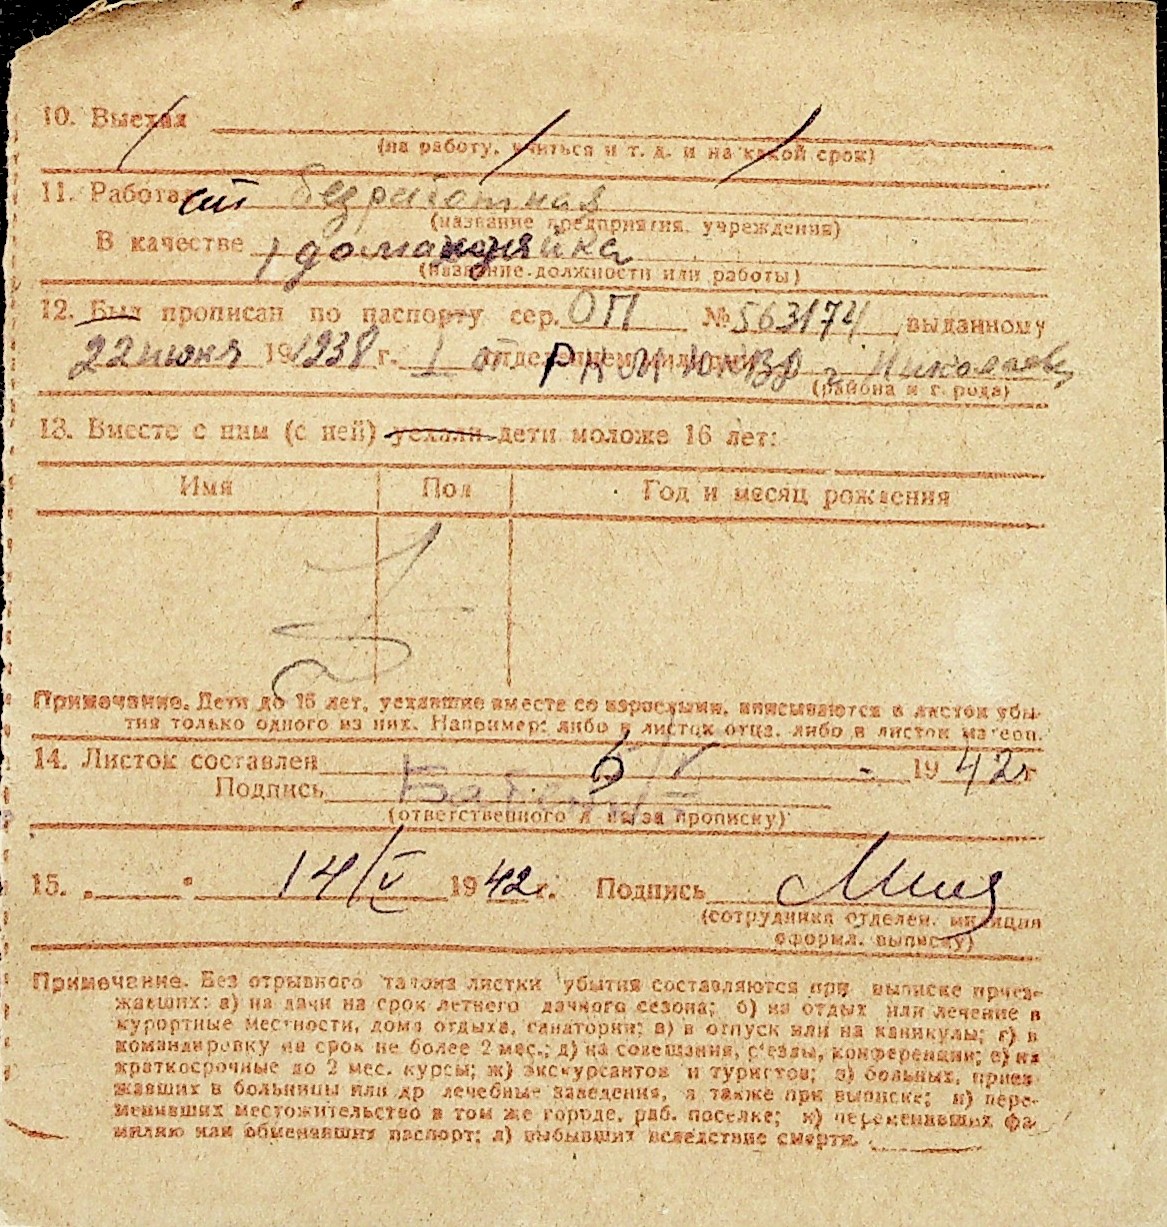 10. Выехал
(на работу, учиться и т. д. и на какой срок)
11. Работает безработная
(название предприятия, учреждения)
В качестве домахозяйка
(название должности или работы)
12. Был прописан по паспорту сер. ОП № 563174, выданному
22 июня 19 1938 г. I от РКМ НКВД г. Николаев
(района и города)
13. Вместе с ним (с ней) уехали дети моложе 16 лет:
Имя Пол Год и месяц рождения
Примечание. Дети до 16 лет, уехавшие вместе со взрослыми, вписываются в листок убы-
тия только одного из них. Например: либо в листок отца, либо в листок матери.
14. Листок составлен 6/V 1942 г
Подпись
(ответственного л за прописку)
15. „ " 14/V 1942 г. Подпись
(сотрудника отделен. милиции
оформл. выписку)
Примечание. Без отрывного талона листки убытия составляются при выписке приез-
жавших: а) на дачи на срок летнего дачного сезона; б) на отдых или лечение в
курортные местности, дома отдыха, санатории; в) в отпуск или на каникулы; г) в
командировку на срок не более 2 мес.; д) на совещания, с'езды, конференции; е) на
краткосрочные до 2 мес. курсы; ж) экскурсантов и туристов; з) больных, приез-
жавших в больницы или др лечебные заведения, а также при выписке; и) пере-
менивших местожительство в том же городе, раб. поселке; к) переменивших фа-
милию или обменявших паспорт; л) выбывших вследствие смерти.